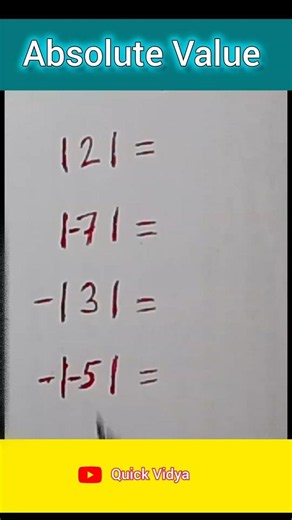 Absolute Value
|2| =
|-7| =
-|3| =
-|-5| =
Quick Vidya